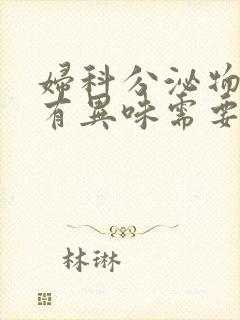 婦科分泌物
有異味需要
林琳